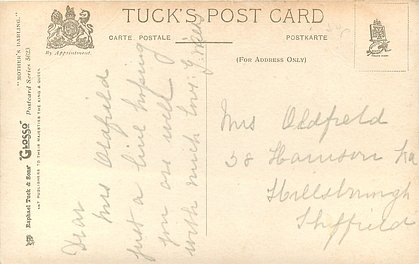 TUCK'S POST CARD
CARTE POSTALE
POSTKARTE
(FOR ADDRESS ONLY)
By Appointment.
"MOTHER'S DARLING."
Raphael Tuck & Sons' "GLOSSO" Postcard Series 5023
ART PUBLISHERS TO THEIR MAJESTIES THE KING & QUEEN.
Dear
Mrs Oldfield
just a line hoping
you are well
with much love
Mrs Oldfield
58 Harrison Rd
Hillsborough
Sheffield